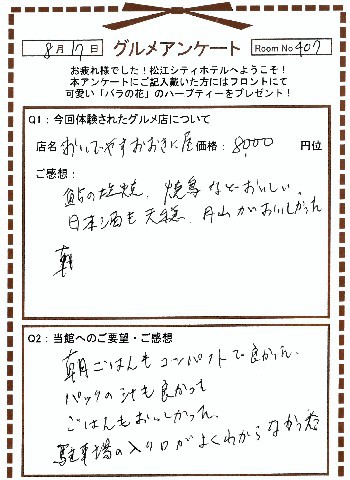 8月17日 グルメアンケート Room No 407
お疲れ様でした！松江シティホテルへようこそ！
本アンケートにご記入戴いた方にはフロントにて
可愛い「バラの花」のハーブティーをプレゼント！
Q1：今回体験されたグルメ店について
店名 おいでやすおおきに屋 価格： 8,000 円位
ご感想：
鮎の塩焼、焼鳥などおいしい。
日本酒も天穏、月山がおいしかった
朝
Q2：当館へのご要望・ご感想
朝ごはんもコンパクトで良かった。
パックの汁も良かった
ごはんもおいしかった。
駐車場の入り口がよくわからなかった